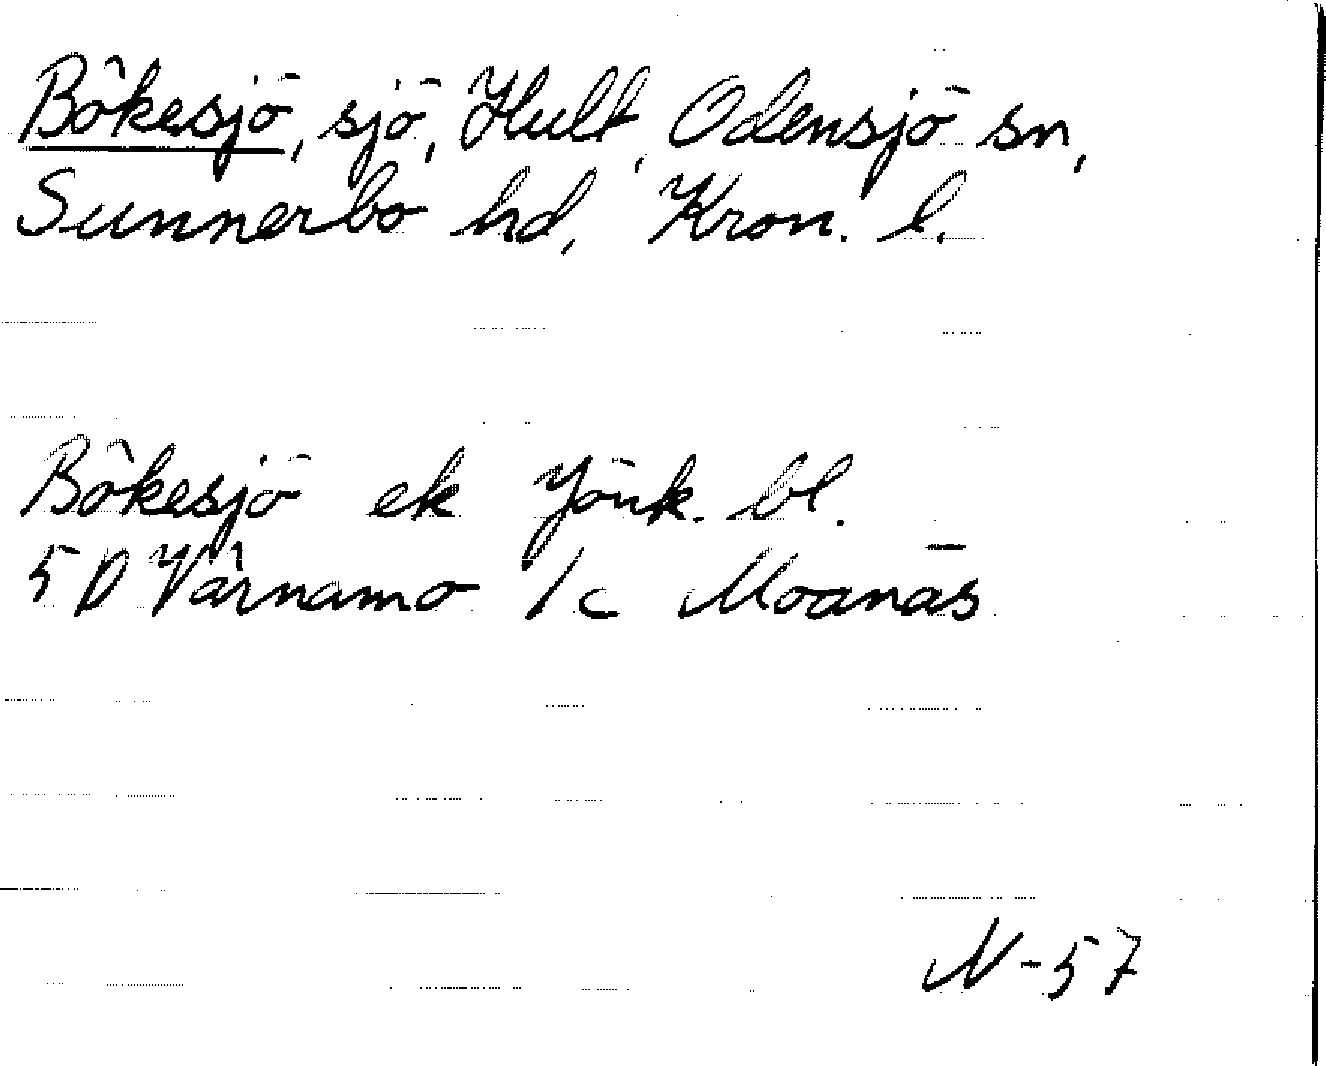 Bökesjö, sjö, Hult, Odensjö sn,
Sunnerbo hd, Kron. l.
Bökesjö ek Jönk. bl.
5D Värnamo 1c Moanäs
N-57